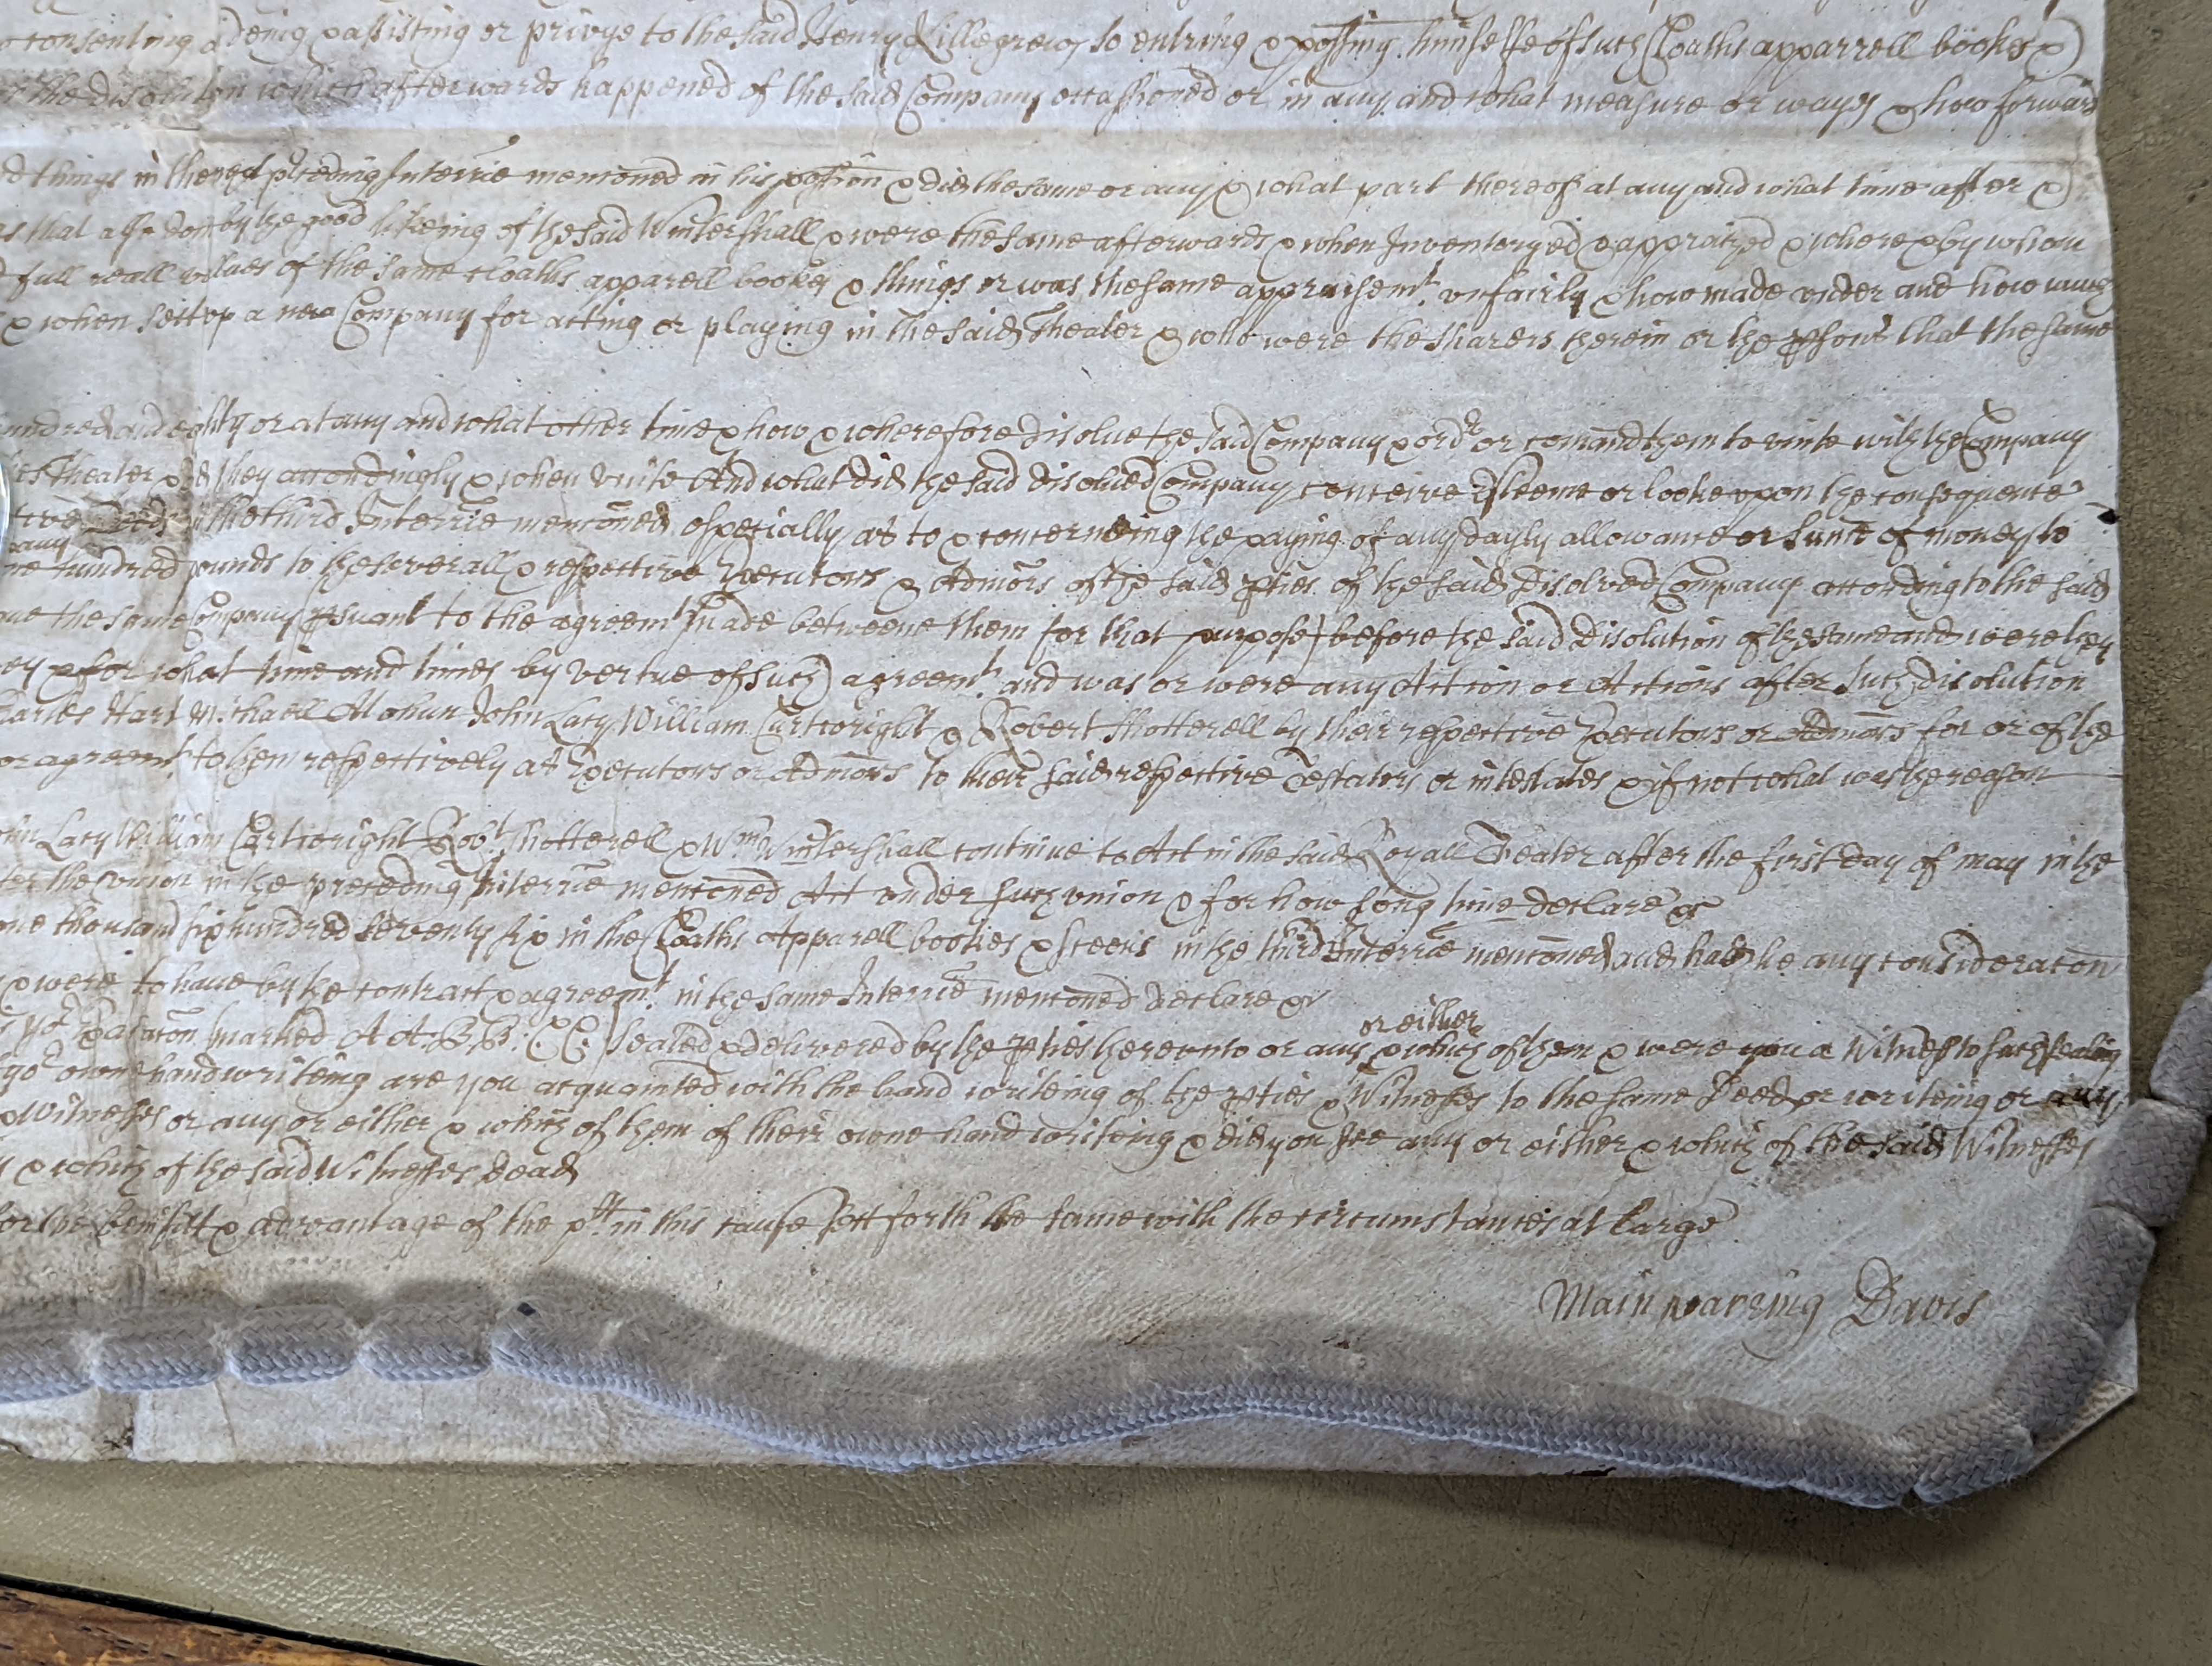 consenting adeing & assisting or privye to the said Henry Killegrew so entring & possing himselfe of such Cloaths apparrell books &
the disolution which afterwards happened of the said Company occasioned or in any and what measure or wayes & how forward
things in the next pceding Interrie mentoned in his possion & did the same or any & what part thereof at any and what time after &
that a by the good likeing of the said Wintershall & were the same afterwards & when Inventoryed & appraized & where & by whom
full reall values of the same cloaths apparell bookes & things or was the same appraisemt. unfairly & how made under and how much
& when sett up a new Company for acting or playing in the said Theater & who were the sharers therein or the psons that the same
hundred and eighty or at any and what other time & how & wherefore disolve the said Company & ordr or comand them to unite with the Company
Theater & did they accordingly & when Unite And what did the said disolved Company conceive Esteeme or looke upon the consequence
the third Interrie mentoned especially as to & concerneing the paying of any dayly allowance or sume of money to
hundred pounds to the severall & respective Executors & Admors of the said pties of the said disolved Company according to the said
the same Company psuant to the agreemt. made betweene them for that purpose before the said disolution of the same and were they
& for what time and times by vertue of such agreemt. and was or were any Action or Actions after such disolution
Charles Hart Michaell Mohun John Lacy William Cartwright & Robert Shotterell by their respective Executors or Admors for or of the
or agreemt. to them respectively as Executors or Admors to their said respective Testators or intestates & if not what was the reason
Lacy William Cartwright Robt. Shotterell & Wm. Wintershall continue to Act in the said Royall Theater after the first day of may in the
the union in the preceding Interrie mentoned Act under such union & for how long time declare &c
one thousand six hundred seventy six in the Cloaths Apparell bookes & sceens in the third Interrie mentoned and had he any consideracon
& were to have by the contract & agreemt. in the same Interrie mentoned declare &c
marked A A. B B: C C: sealed & delivered by the pties hereunto or any or either & which of them & were you a Witness to such sealing
yor owne hand writeing are you acquainted with the hand writeing of the pties & Witnesses to the same Deed or writeing or any
Witnesses or any or either & which of them of their owne hand writeing & did you see any or either & which of the said Witnesses
& which of the said Witnesses dead
for the benifitt & advantage of the plt. in this cause sett forth the same with the circumstances at large
Mainwareing Davis